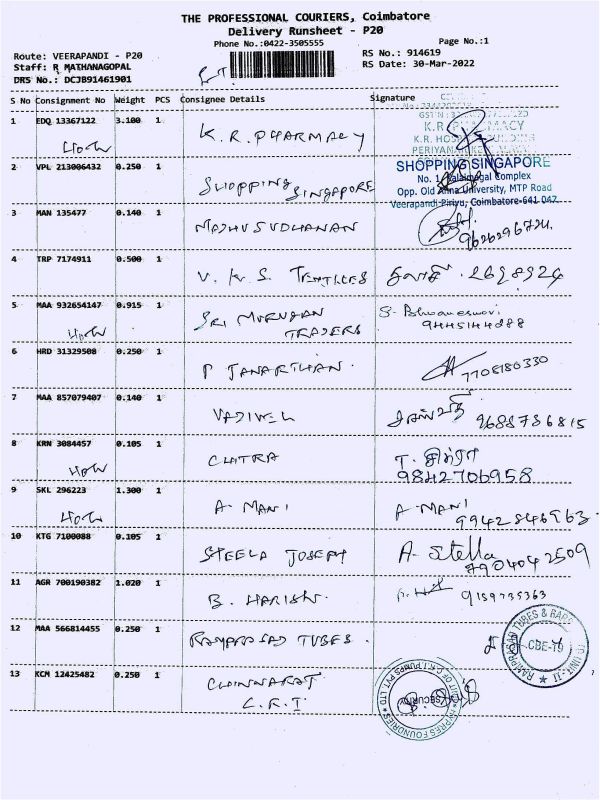 THE PROFESSIONAL COURIERS, Coimbatore
Delivery Runsheet - P20
Phone No.:0422-3505555
Page No.:1
Route: VEERAPANDI - P20
RS No.: 914619
Staff: R MATHANAGOPAL
RS Date: 30-Mar-2022
DRS No.: DCJB91461901
S No Consignment No Weight PCS Consignee Details Signature
1 EDQ 13367122 3.100 1 K.R. PHARMACY
K.R. PHARMACY
K.R. HOSPITAL BUILDING
2 VPL 213006432 0.250 1 SHOPPING SINGAPORE
SHOPPING SINGAPORE
Opp. Old Anna University, MTP Road
Veerapandi Pirivu, Coimbatore-641 047.
3 MAN 135477 0.140 1 MADHUSUDHANAN
9626296724
4 TRP 7174911 0.500 1 V.K.S. TEXTILES
5 MAA 932654147 0.915 1 SRI MURUGAN TRADERS S. Bhuvaneswari
9445144288
6 HRD 31329508 0.250 1 P JANARTHAN. 7708180330
7 MAA 857079407 0.140 1 VADIVEL 9688736815
8 KRN 3084457 0.105 1 CHITRA T. சித்ரா
9842706958
9 SKL 296223 1.300 1 A. MANI A MANI
9942846963
10 KTG 7100088 0.105 1 STEELA JOSEPH A. Stella
7904042509
11 AGR 700190382 1.020 1 B. HARISH. 9159735363
12 MAA 566814455 0.250 1 RAMPRASAD TUBES.
CBE-76
13 KCM 12425482 0.250 1 CHINNARAJ
C.R.I
SECURITY